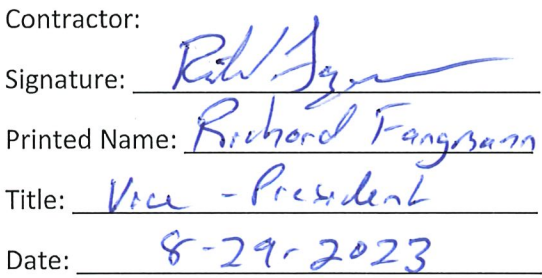 Contractor:
Signature:
Printed Name: Richard Fangmann
Title: Vice - President
Date: 8-29-2023